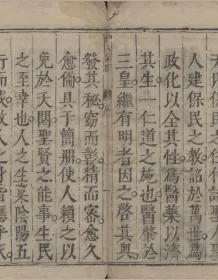 天四時
人建保民之教詒於萬世爲
政化以全其性爲醫藥以濟
其生一仁道之施也醫肇於
三皇繼有明者因之啓其奥
發其秘窈而精而密愈久
愈備具于簡册使人賴之以
免於夭閼聖賢之能事生民
之至幸也人之生稟陰陽五
行而